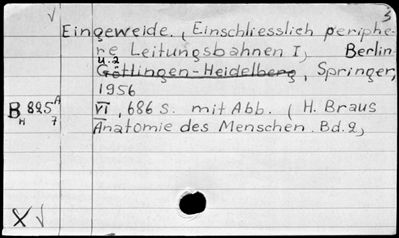 √ 3
Eingeweide. (Einschliesslich periphe-
re Leitungsbahnen I) Berlin-
u.a
Göttingen-Heidelberg, Springer,
1956
B 825 A VI, 686 S. mit Abb. (H. Braus
H 7 Anatomie des Menschen. Bd. 2)
X √